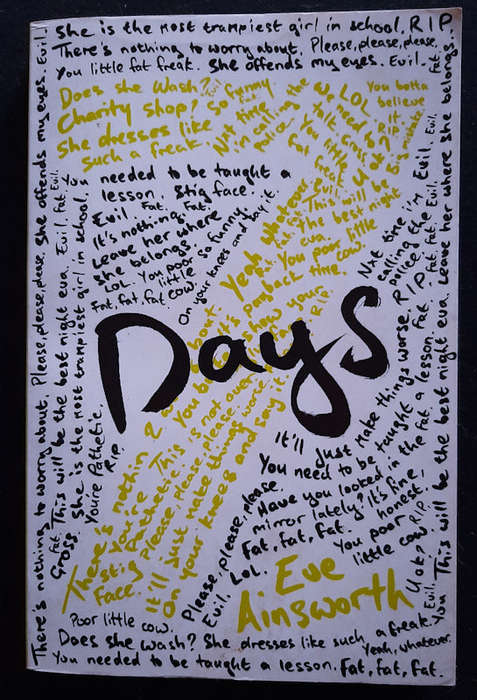 She is the most trampiest girl in school. R.I.P.
There's nothing to worry about. Please, please, please,
You little fat freak. She offends my eyes. Evil.
Does she wash? So funny.
Charity shop?
She dresses like
such a freak.
Not time
in calling the
police.
LOL.
We need to
talk.
You little
fat freak.
You gotta
believe
it.
RIP.
You needed to be taught a
lesson. Stig face.
Evil. Fat. Fat.
It's nothing.
Leave her where
she belongs.
LOL. You poor
little
cow.
Fat, fat, fat
So funny.
On your knees and say it.
Yeah whatever
This will be
the best night
eva.
You poor little
cow.
payback time.
Not time I'm
calling the
police.
Days
There's nothin
You're
Pathetic.
stig
Face.
This is not over.
Please, please, please.
It'll just make things worse.
On your knees and say it.
It'll just make things worse. R.I.P.
You need to be taught a lesson. Fat.
Have you looked in the
mirror lately? It's fine,
honest.
Fat, fat, fat.
You poor
little cow.
Please, please, please.
Evil. LOL.
Eve
Ainsworth
Poor little cow.
Does she wash? She dresses like such a freak.
Yeah, whatever.
You needed to be taught a lesson. Fat, fat, fat.
There's nothing to worry about. Please, please, please. She offends my eyes. Evil.
Gross. Fat. This will be the best night eva. Evil. Fat. Evil.
She is the most trampiest girl in school.
You're Pathetic.
R.I.P.
You This will be the best night eva. Leave her where she belongs.